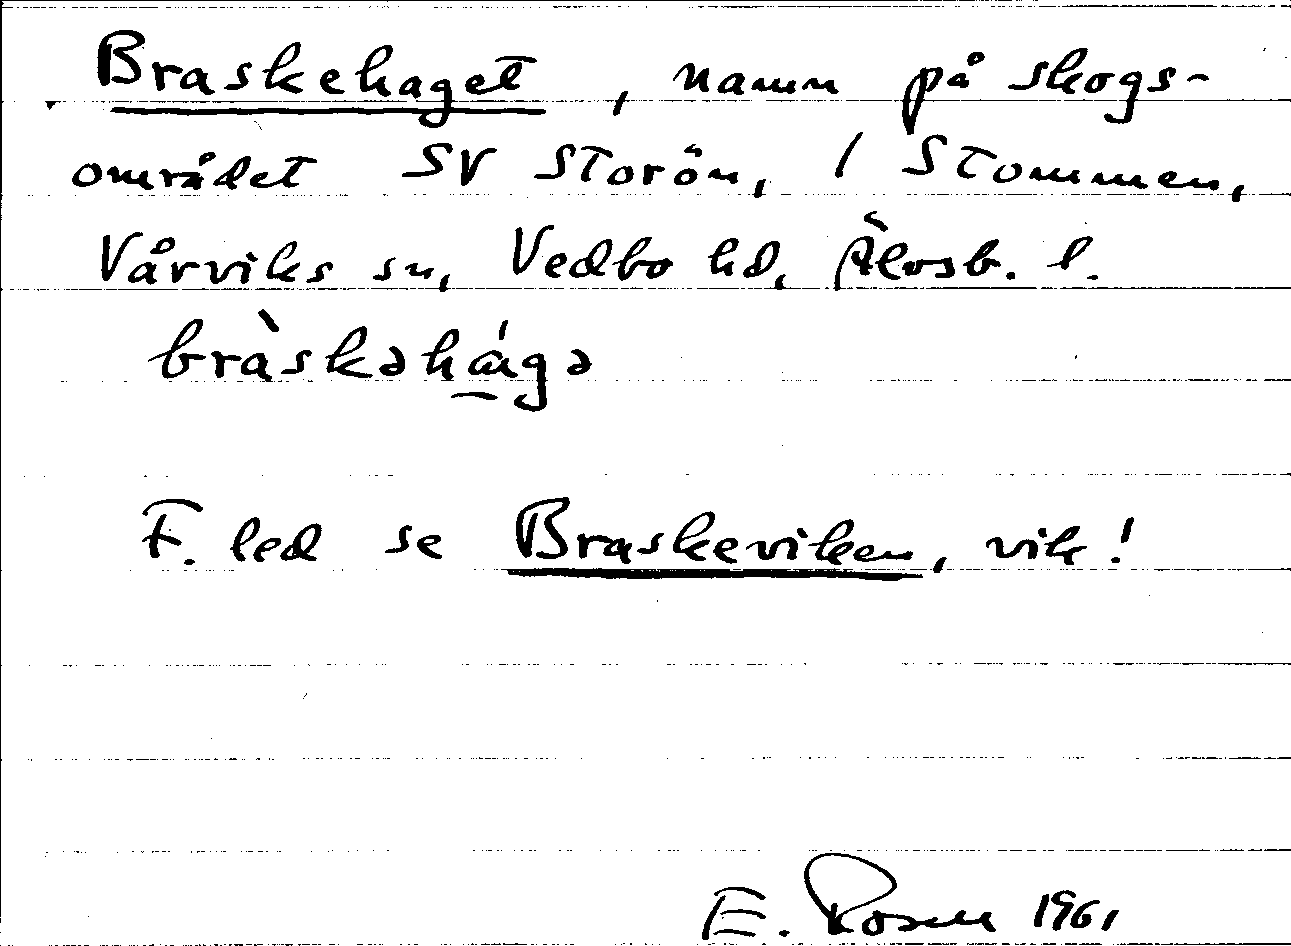 Braskehaget, namn på skogs-
området SV Storön, / Stommen,
Vårviks sn, Vedbo hd, Älvsb. l.
bràskəhágə
F. led se Braskeviken, vik!
E. Rosell 1961